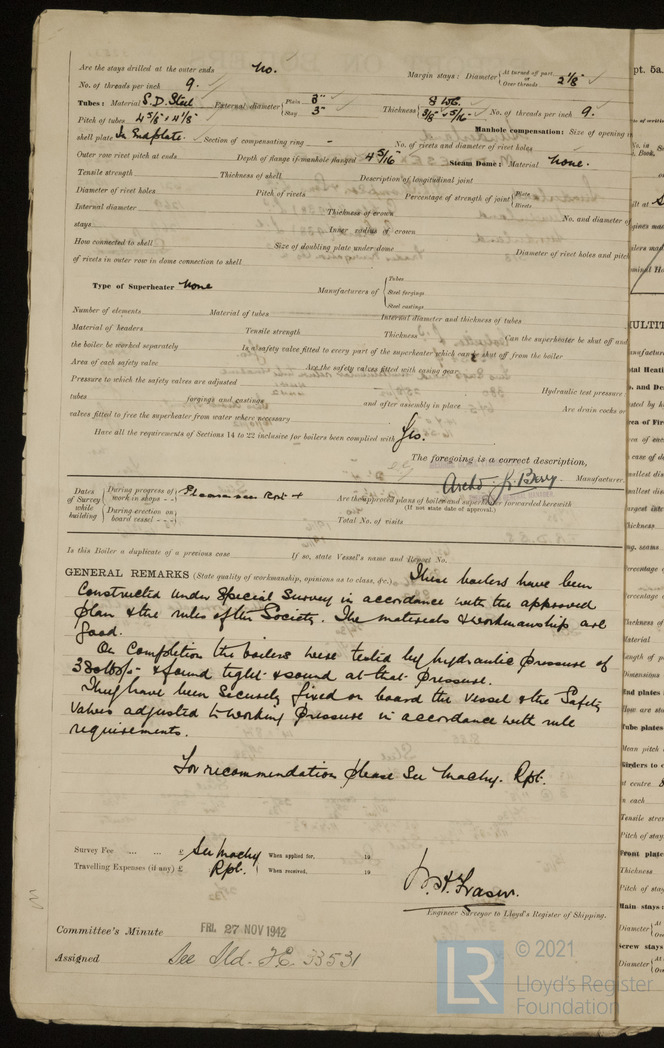 Are the stays drilled at the outer ends No. Margin stays: Diameter { At turned off part or Over threads 2 1/8"
No. of threads per inch 9.
Tubes: Material S.D. Steel External diameter { Plain 3" Stay 3" Thickness { 8 WG. 3/8" & 5/16" No. of threads per inch 9.
Pitch of tubes 4 5/8" x 4 1/8" Manhole compensation: Size of opening in
shell plate In Endplate. Section of compensating ring — No. of rivets and diameter of rivet holes
Outer row rivet pitch at ends Depth of flange if manhole flanged 4 5/16" Steam Dome: Material None.
Tensile strength Thickness of shell Description of longitudinal joint
Diameter of rivet holes Pitch of rivets Percentage of strength of joint { Plate Rivets
Internal diameter Thickness of crown No. and diameter of
stays Inner radius of crown
How connected to shell Size of doubling plate under dome Diameter of rivet holes and pitch
of rivets in outer row in dome connection to shell
Type of Superheater None Manufacturers of { Tubes Steel forgings Steel castings
Number of elements Material of tubes Internal diameter and thickness of tubes
Material of headers Tensile strength Thickness Can the superheater be shut off and
the boiler be worked separately Is a safety valve fitted to every part of the superheater which can be shut off from the boiler
Area of each safety valve Are the safety valves fitted with easing gear
Pressure to which the safety valves are adjusted Hydraulic test pressure
tubes forgings and castings and after assembly in place Are drain cocks or
valves fitted to free the superheater from water where necessary
Have all the requirements of Sections 14 to 22 inclusive for boilers been complied with Yes.
The foregoing is a correct description,
Manufacturer.
Dates of Survey while building { During progress of work in shops - - } Please see Rpt 4 Are the approved plans of boiler and superheater forwarded herewith
(If not state date of approval.)
{ During erection on board vessel - - - } Total No. of visits
Is this Boiler a duplicate of a previous case If so, state Vessel's name and Report No.
GENERAL REMARKS (State quality of workmanship, opinions as to class, &c.) These boilers have been
constructed under Special Survey in accordance with the approved
plan & the rules of the Society. The materials & workmanship are
good.
On completion the boilers were tested by hydraulic pressure of
380 lbs/□" & found tight & sound at that pressure.
They have been securely fixed on board the vessel & the Safety
Valves adjusted to working pressure in accordance with rule
requirements.
For recommendation please see Machy. Rpt.
Survey Fee ... ... £ See Machy When applied for, 19
Travelling Expenses (if any) £ Rpt. When received, 19
W. H. Fraser.
Engineer Surveyor to Lloyd's Register of Shipping.
Committee's Minute FRI. 27 NOV 1942
Assigned See Sld. F.E. 33531
LR © 2021
Lloyd's Register
Foundation